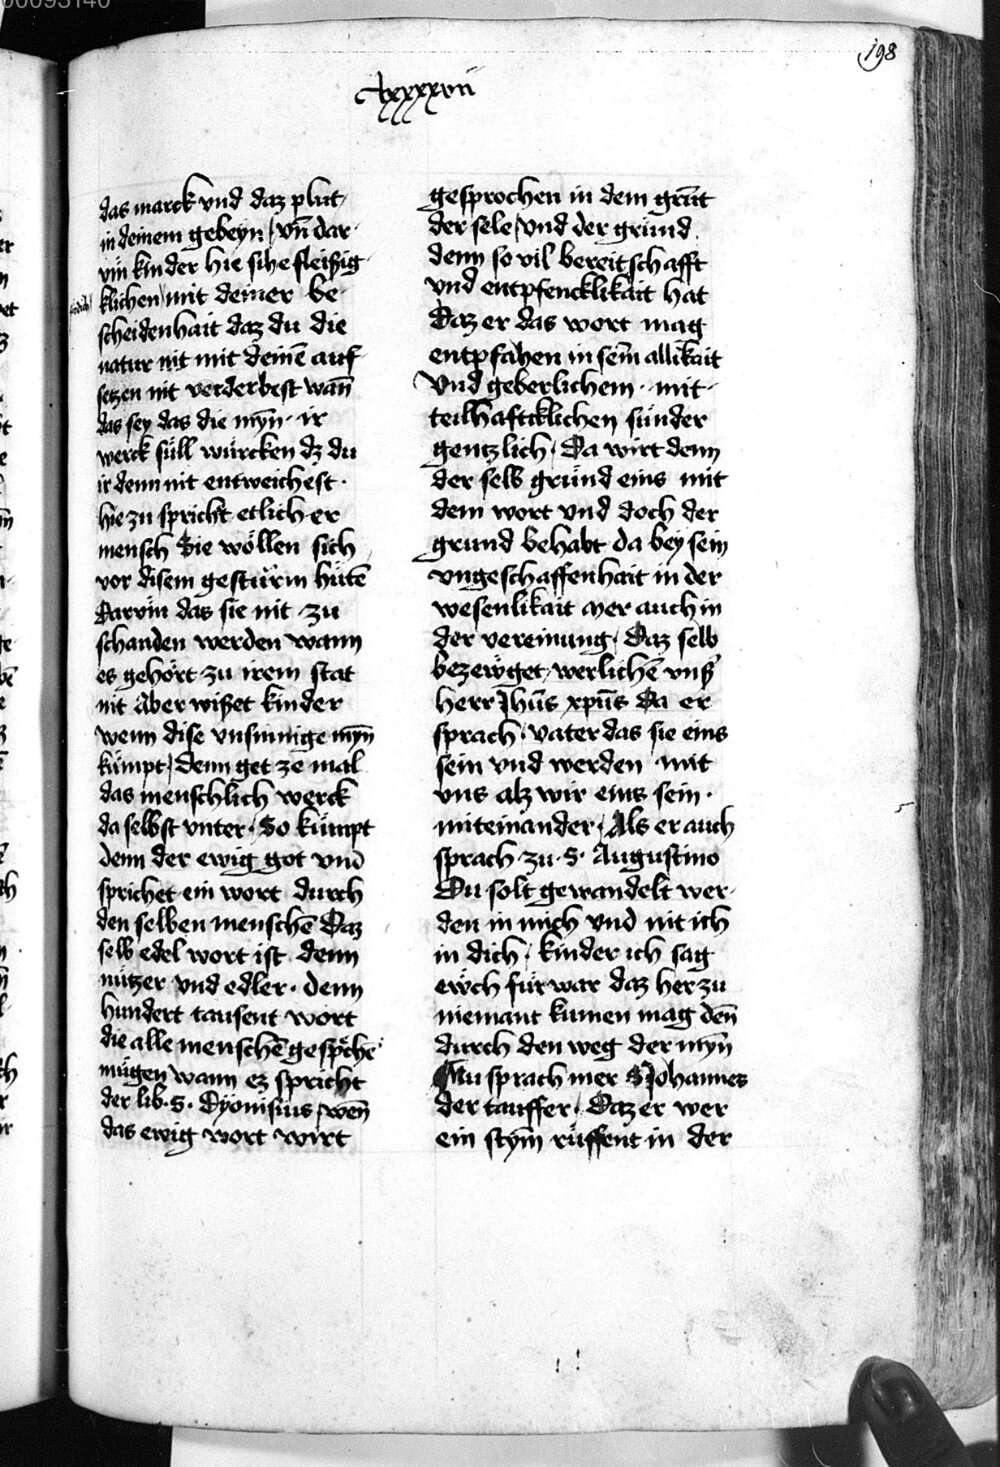 00093140
198
lxxxxvii
das marck vnd daz plut
in deinem gebeyn / vn̄ dar
vm̄ kinder hie sihe fleißig
klichen mit deiner be
scheidenhait daz du die
natur nit mit deinē auf
setzen nit verderbest wan̄
das sey das die myn̄ · ir
werck süll würcken dz du
ir denn nit entweichest ·
hie zu spricht etlich er
mensch Sie wöllen sich
vor disem gesturm hütē
Darvm̄ das sie nit zu
schanden werden wann
es gehört zu irem stat
nit Aber wißet kinder
wenn dise vnsinnige myn̄
kumpt / Denn get ze mal
das menschlich werck
da selbst vnter · So kümpt
denn der ewig got vnd
sprichet ein wort durch
den selben menschē Daz
selb edel wort ist denn
nützer vnd edler · denn
hundert tausent wort
die alle menschē gespchē
mügen wann ez spricht
der lib · S · Dyonisius / wen̄
das ewig wort wirt
gesprochen in dem grūt
der sele / vnd der grund
denn so vil bereitschafft
vnd entpfencklikait hat
Daz er das wort mag
entpfahen in sein̄ allikait
Vnd geberlichem · mit
teilhafticklichen sunder
gentzlich · Da wirt denn
der selb grund eins mit
dem wort vnd doch der
grund behabt da bey sein
vngeschaffenhait in der
wesenlikait mer auch in
der vereinung · Daz selb
bezewget werlichē vnß
herr Jhūs xpūs Da er
sprach / vater das sie eins
sein vnd werden mit
vns alz wir eins sein ·
miteinander / Als er auch
sprach · zu · S · Augustino
Du solt gewandelt wer
den in mich vnd nit ich
in dich / kinder ich sag
ewch fürwar daz her zu
niemant kumen mag den̄
durch den weg der myn̄
Nu sprach mer S Johannes
der tauffer / Daz er wer
ein stym̄ rüffent in der